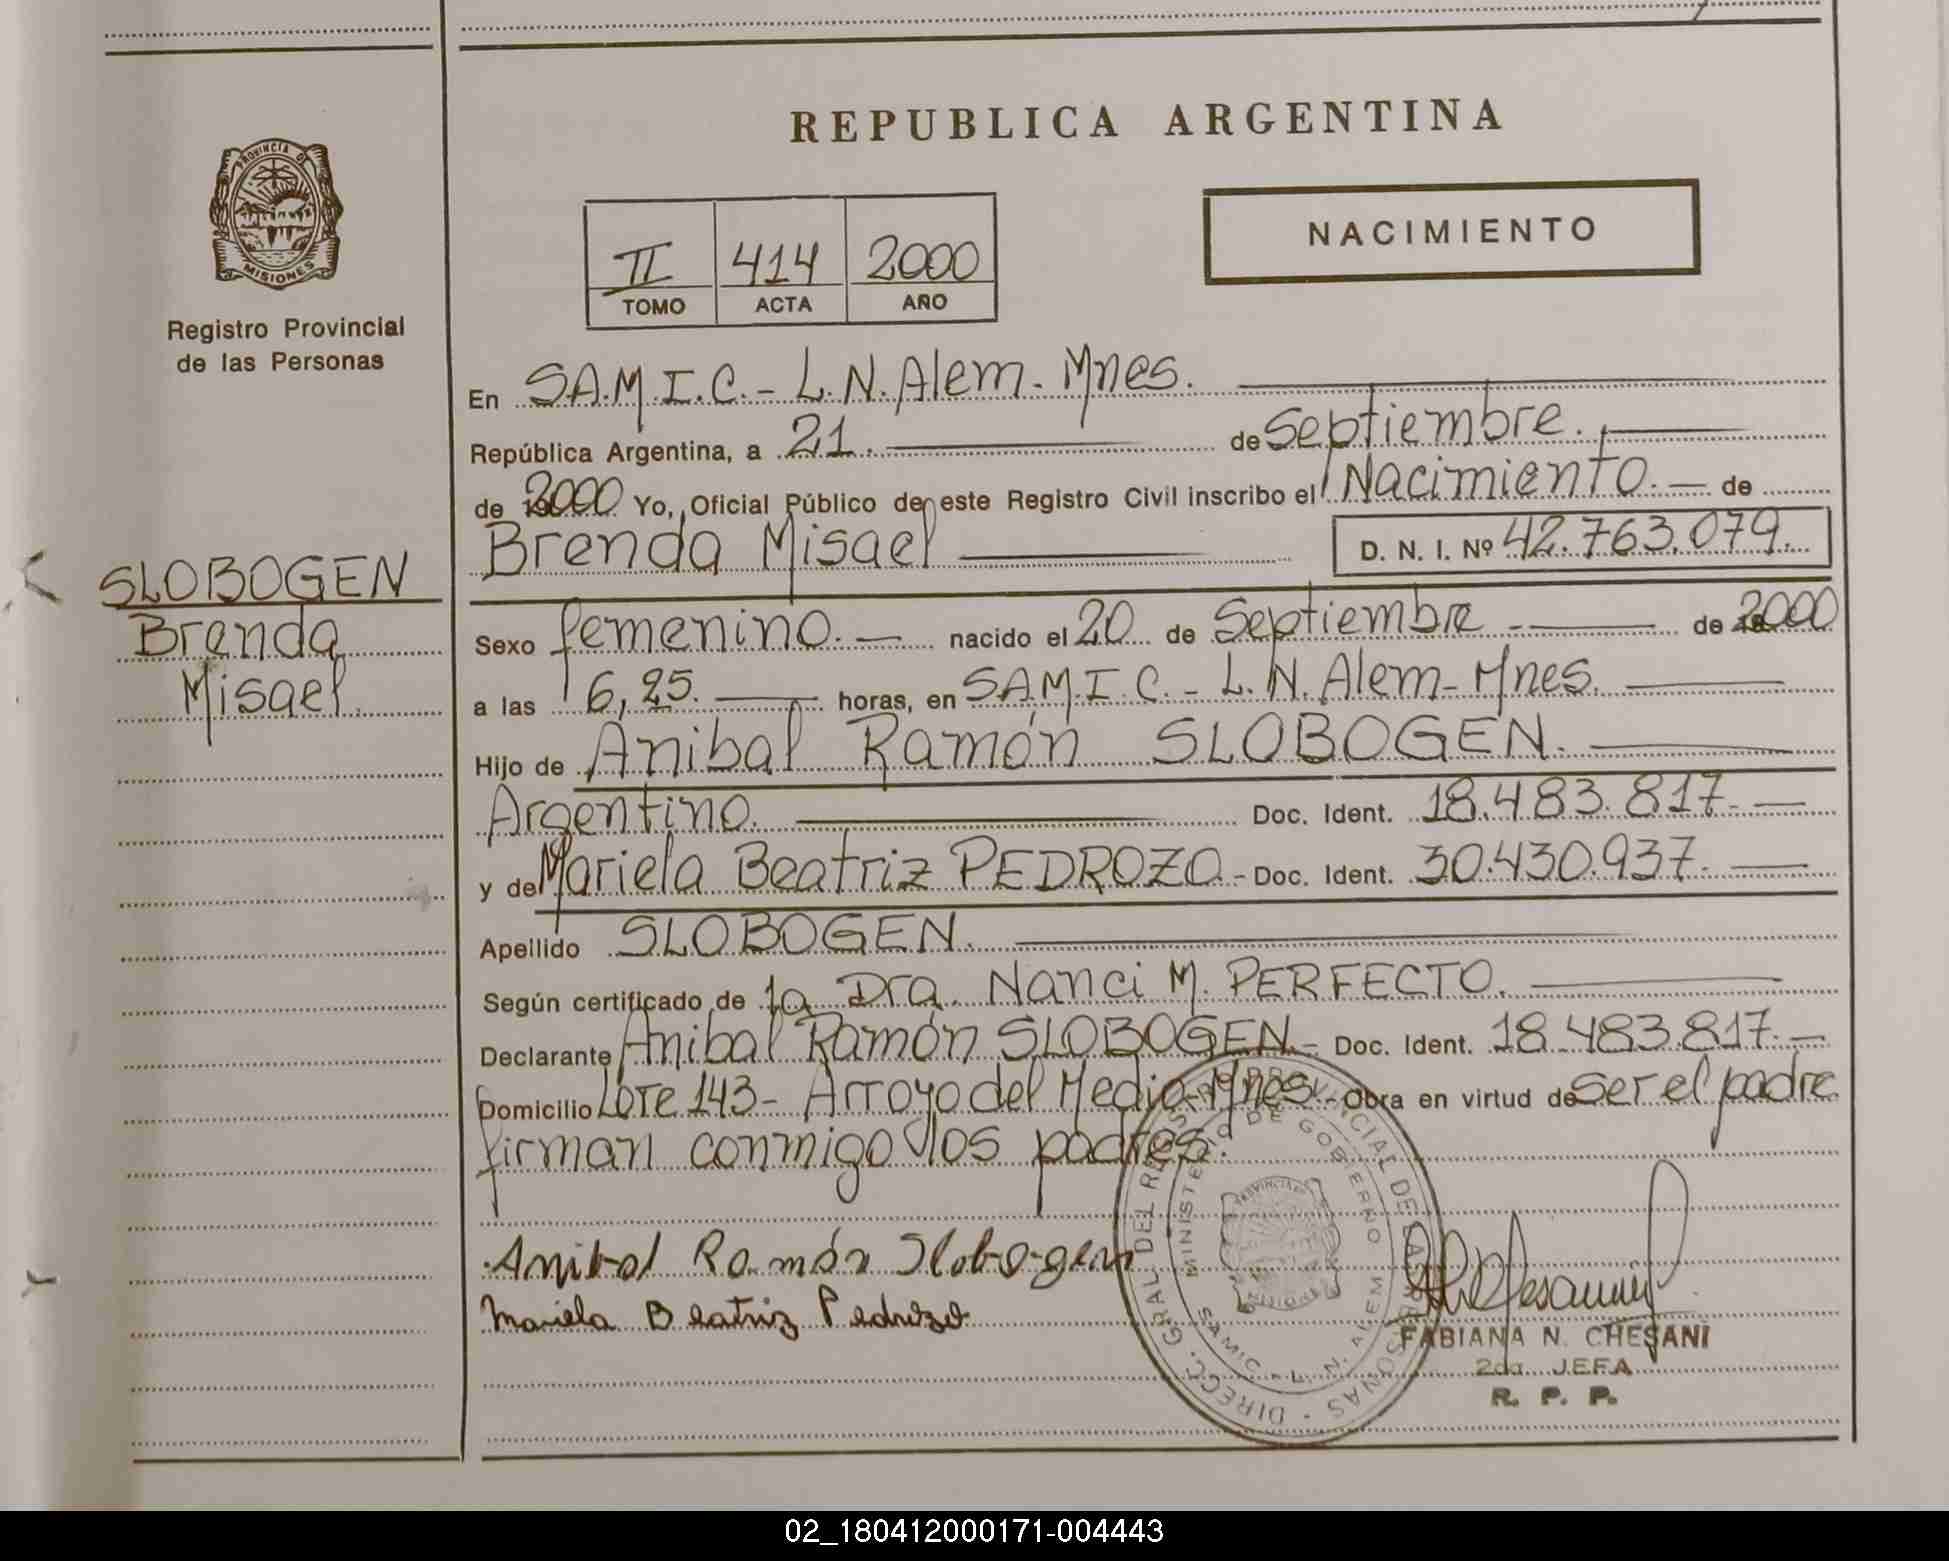 REPUBLICA ARGENTINA
PROVINCIA DE
MISIONES
Registro Provincial
de las Personas
II 414 2000
TOMO ACTA AÑO
NACIMIENTO
En S.A.M.I.C. - L.N. Alem - Mnes.
República Argentina, a 21. de Septiembre.
de 2000 Yo, Oficial Público de este Registro Civil inscribo el Nacimiento. de
Brenda Misael D. N. I. Nº 42.763.079.
SLOBOGEN
Brenda
Misael.
Sexo femenino. nacido el 20 de Septiembre - de 2000
a las 6,25. horas, en S.A.M.I.C. - L.N. Alem - Mnes.
Hijo de Anibal Ramón SLOBOGEN.
Argentino. Doc. Ident. 18.483.817.
y de Mariela Beatriz PEDROZO - Doc. Ident. 30.430.937.
Apellido SLOBOGEN.
Según certificado de la Dra. Nanci M. PERFECTO.
Declarante Anibal Ramón SLOBOGEN - Doc. Ident. 18.483.817.
Domicilio Lote 143 - Arroyo del Medio - Mnes. - Obra en virtud de ser el padre
firman conmigo los padres.
Anibal Ramón Slobogen
Mariela Beatriz Pedrozo
DIRECC. GRAL. DEL REGISTRO PROVINCIAL DE LAS PERSONAS
MINISTERIO DE GOBIERNO
SAMIC - L. N. ALEM
PROVINCIA DE
MISIONES
FABIANA N. CHESANI
2da JEFA
R. P. P.
02_180412000171-004443